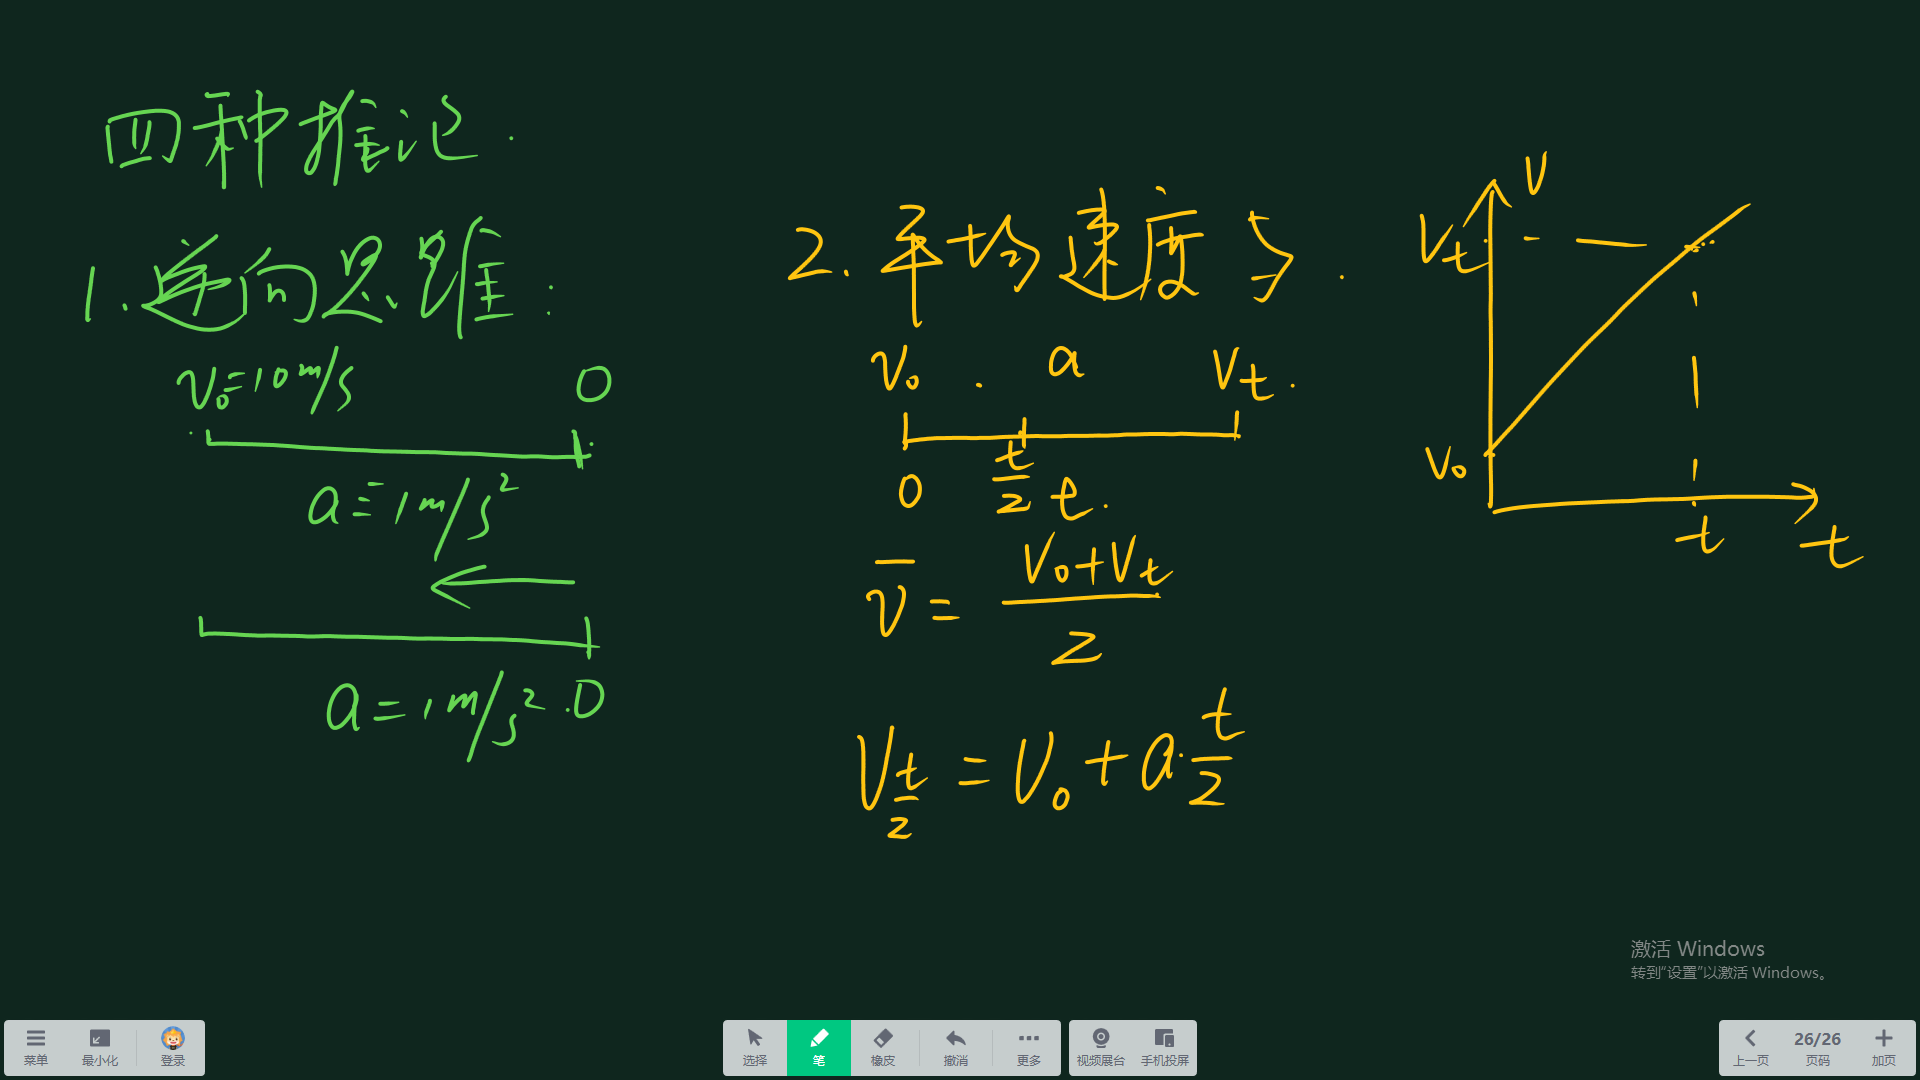 四种推论.
1.逆向思维:
V₀=10m/s 0
a=1m/s²
a=1m/s² 0
2.平均速度
V₀ a Vt
0 t/2 t
v̄ = (V₀+Vt)/2
V_{t/2} = V₀ + a·t/2
V
Vt
V₀
t
t
激活 Windows
转到“设置”以激活 Windows。
菜单 最小化 登录 选择 笔 橡皮 撤消 更多 视频展台 手机投屏 上一页 26/26 页码 加页